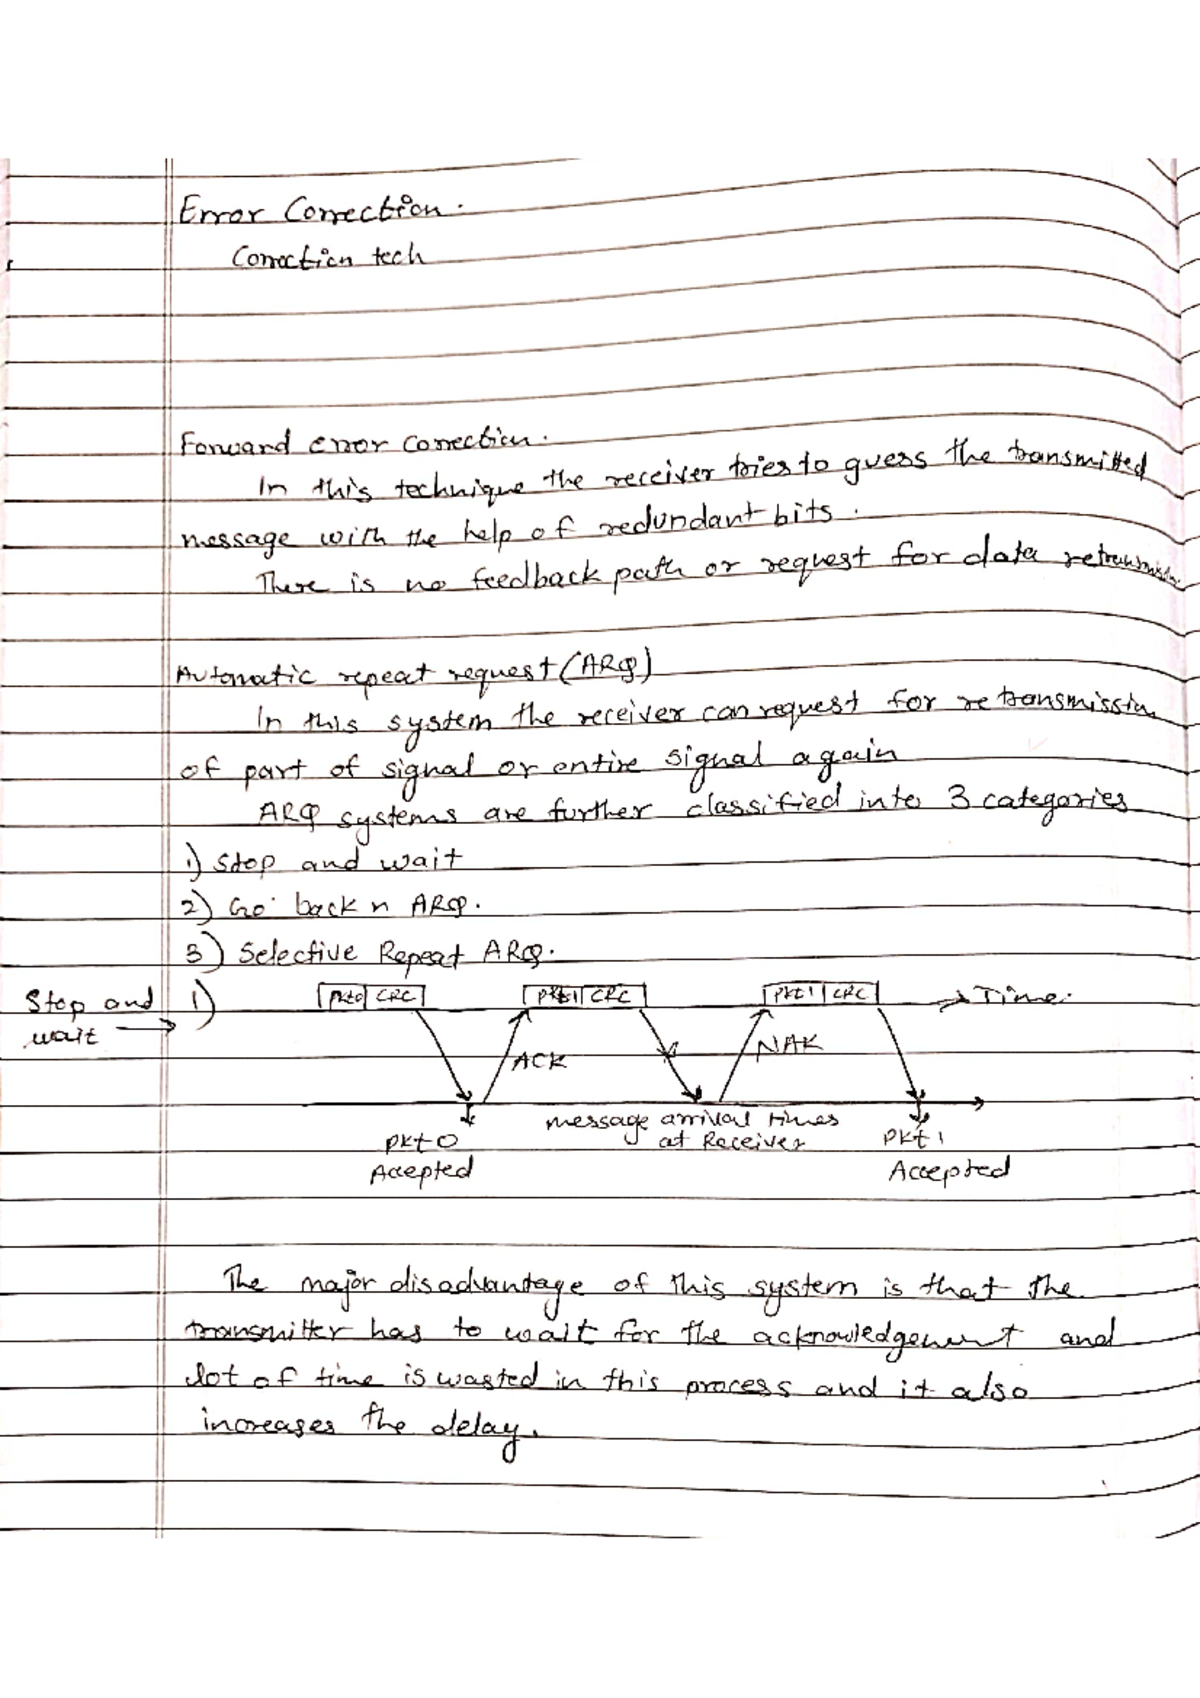 Error Correction.
Correction tech
Forward error correction.
In this technique the receiver tries to guess the transmitted
message with the help of redundant bits.
There is no feedback path or request for data retransmission
Automatic repeat request (ARQ)
In this system the receiver can request for retransmission
of part of signal or entire signal again
ARQ systems are further classified into 3 categories
1) Stop and wait
2) Go back n ARQ.
3) Selective Repeat ARQ.
Stop and 1) Pkt0 CRC Pkt1 CRC Pkt1 CRC → Time.
wait →
ACK NAK
message arrival times
at Receiver
Pkt 0 Pkt 1
Accepted Accepted
The major disadvantage of this system is that the
transmitter has to wait for the acknowledgement and
lot of time is wasted in this process and it also
increases the delay.